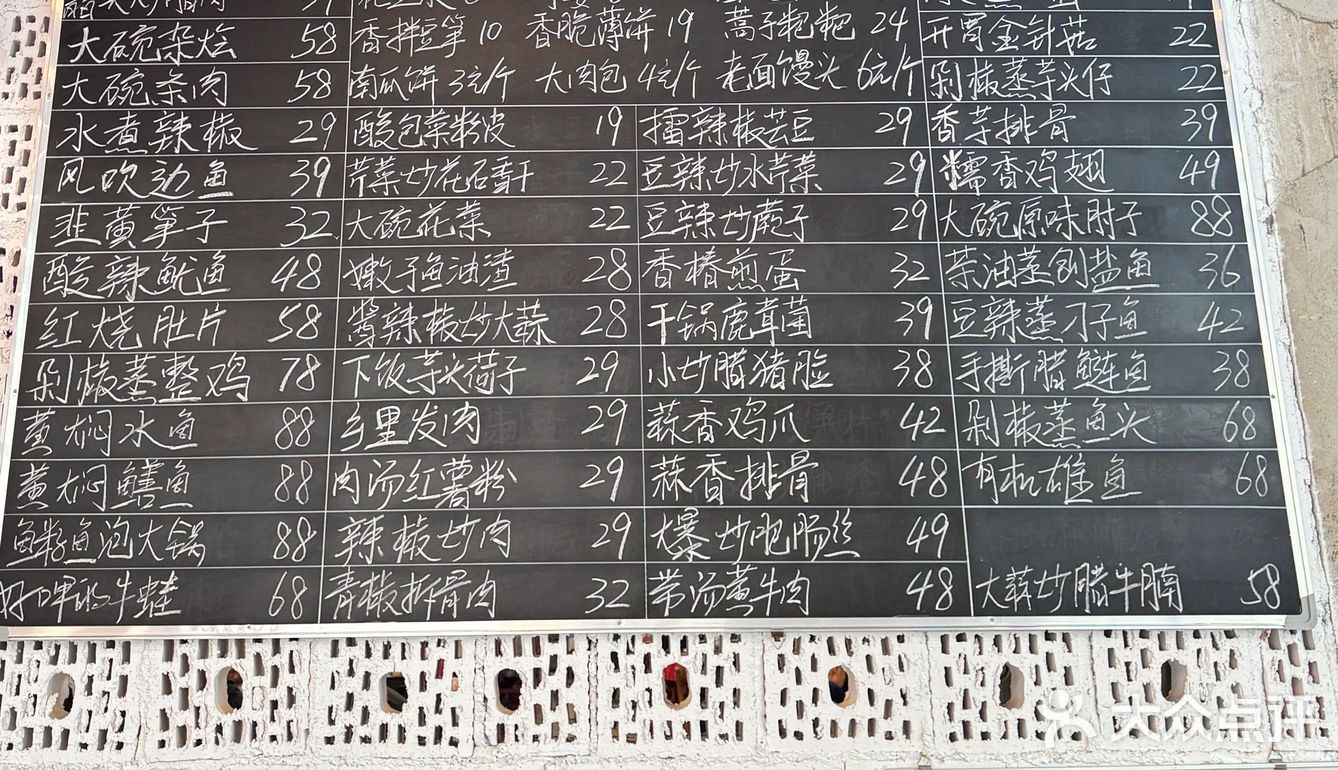 大碗杂烩 58 香拌豆笋 10 香脆薄饼 19 蒿子粑粑 24 开胃金针菇 22
大碗条肉 58 南瓜饼 3元/个 大肉包 4元/个 老面馒头 6元/个 剁椒蒸芋头仔 22
水煮辣椒 29 酸包菜粉皮 19 擂辣椒芸豆 29 香芋排骨 39
风吹边鱼 39 芹菜炒花石香干 22 豆辣炒水芹菜 29 糯香鸡翅 49
韭黄笋子 32 大碗花菜 22 豆辣炒蕨子 29 大碗原味肘子 88
酸辣鱿鱼 48 嫩子鱼油渣 28 香椿煎蛋 32 茶油蒸刨盐鱼 36
红烧肚片 58 酱辣椒炒大蒜 28 干锅鹿茸菌 39 豆辣蒸刁子鱼 42
剁椒蒸整鸡 78 下饭芋头荷子 29 小炒腊猪脸 38 手撕腊鲢鱼 38
黄焖水鱼 88 乡里发肉 29 蒜香鸡爪 42 剁椒蒸鱼头 68
黄焖鳝鱼 88 肉汤红薯粉 29 蒜香排骨 48 有机雄鱼 68
鱼籽鱼泡大锅 88 辣椒炒肉 29 大爆炒肥肠丝 49
好呷的牛蛙 68 青椒拆骨肉 32 带汤黄牛肉 48 大蒜炒腊牛腩 58
大众点评